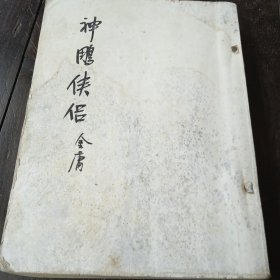 神鵰侠侣 金庸